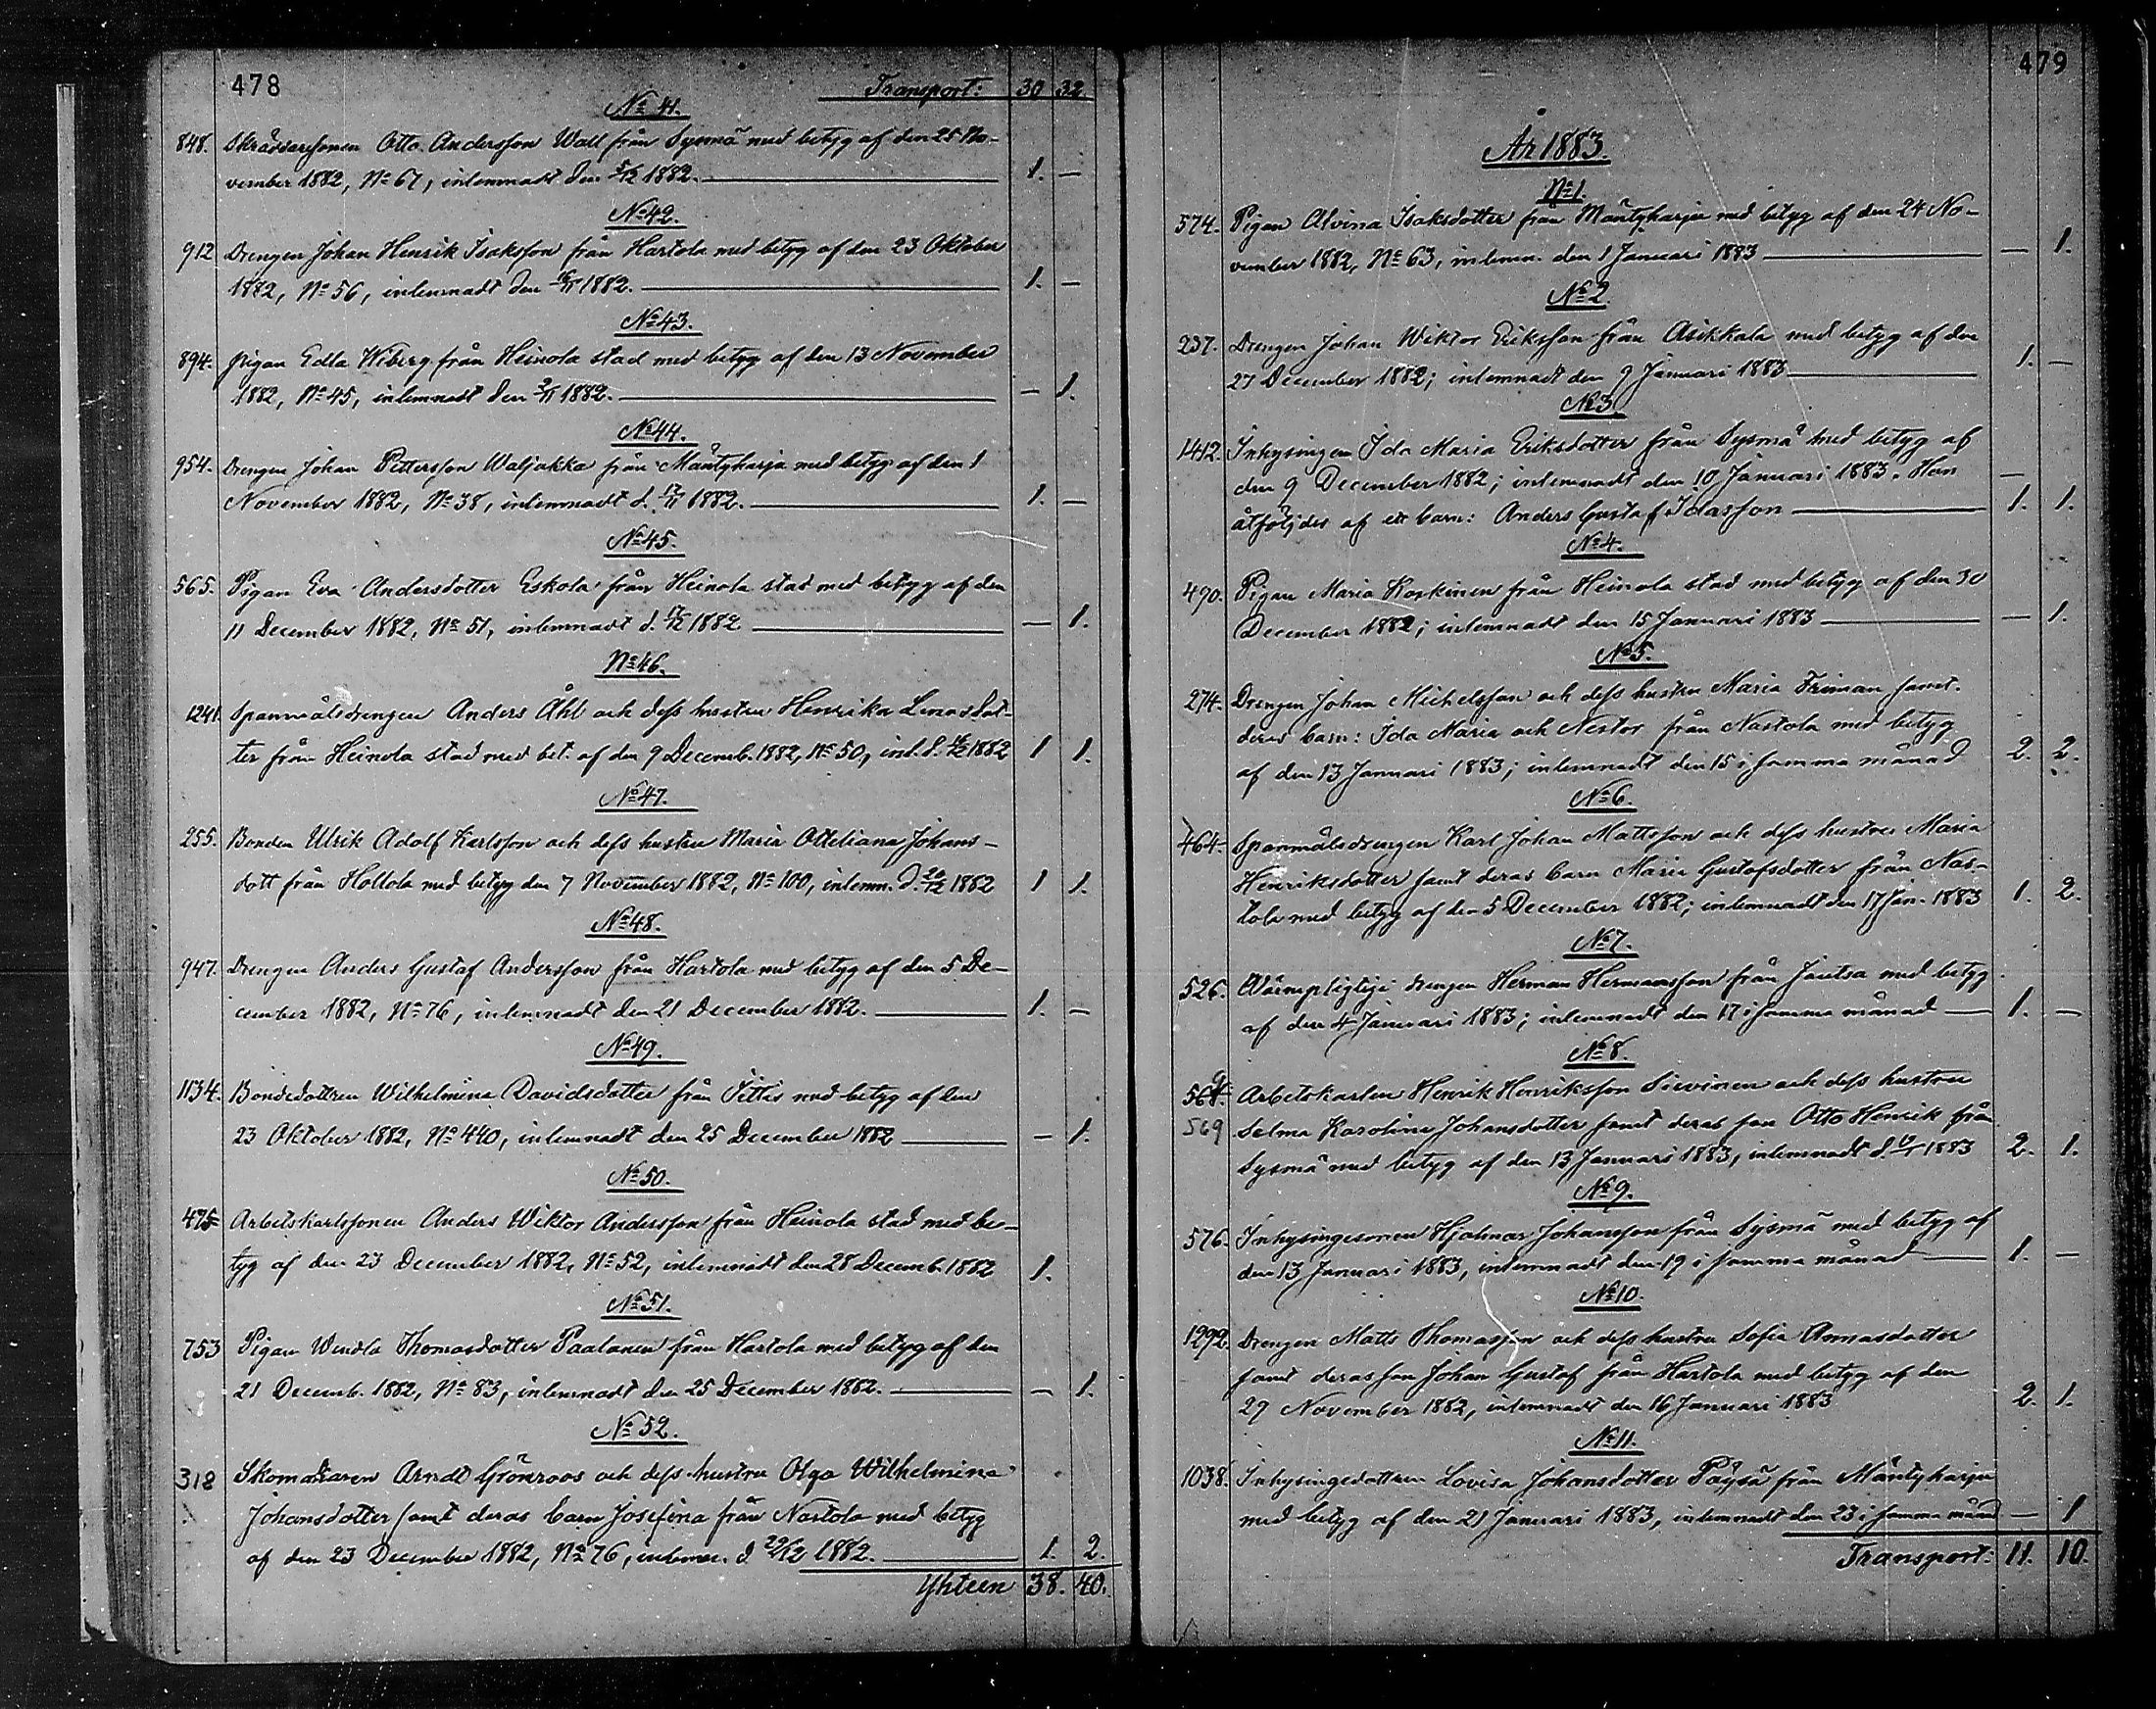 478
Transport: 30 32.
No 41.
848. Skräddaresonen Otto Andersson Wall från Sysmä med betyg af den 25 No-
vember 1882, No 67, inlemnadt den 5/12 1882. 1. —
No 42.
912 Drengen Johan Henrik Isaksson från Hartola med betyg af den 23 Oktober
1882, No 56, inlemnadt den 16/11 1882. 1. —
No 43.
894. Pigan Edla Wiberg från Heinola stad med betyg af den 13 November
1882, No 45, inlemnadt den 1882. — 1.
No 44.
954. Drengen Johan Pettersson Waljakka från Mäntyharju med betyg af den 1
November 1882, No 38, inlemnadt d. 1882. 1. —
No 45.
565. Pigan Eva Andersdotter Eskola från Heinola stad med betyg af den
11 December 1882, No 51, inlemnadt d. 1882 — 1.
No 46.
1241. Spanmålsdrengen Anders Åhl och dess hustru Henrika Linasdot-
ter från Heinola stad med bet. af den 9 Decemb. 1882, No 50, inl. d. 1882 1 1.
No 47.
255. Bonden Ulrik Adolf Karlsson och dess hustru Maria Otteliana Johans-
dott från Hollola med betyg den 7 November 1882, No 100, inlemn. d. 20/12 1882 1 1.
No 48.
947. Drengen Anders Gustaf Andersson från Hartola med betyg af den 5 De-
cember 1882, No 76, inlemnadt den 21 December 1882. 1. —
No 49.
1134. Bondedottren Wilhelmina Davidsdotter från Pittis med betyg af den
23 Oktober 1882, No 440, inlemnadt den 25 December 1882 — 1.
No 50.
475 Arbetskarlssonen Anders Wiktor Andersson från Heinola stad med be-
tyg af den 23 December 1882, No 52, inlemnadt den 28 Decemb. 1882 1.
No 51.
753 Pigan Wendla Thomasdotter Paalanen från Hartola med betyg af den
21 Decemb. 1882, No 83, inlemnadt den 25 December 1882. — 1.
No 52.
318 Skomakaren Arndt Grönroos och dess hustru Olga Wilhelmina
Johansdotter samt deras barn Josefina från Nastola med betyg
af den 23 December 1882, No 76, inlemn. d. 29/12 1882. 1. 2.
Yhteen 38. 40.
479
År 1883.
No 1.
574. Pigan Alvina Isaksdotter från Mäntyharju med betyg af den 24 No-
vember 1882, No 63, inlemn. den 1 Januari 1883 — 1.
No 2.
237. Drengen Johan Wiktor Eriksson från Asikkala med betyg af den
27 December 1882; inlemnadt den 9 Januari 1883 1. —
No 3
1412. Inhysingen Ida Maria Eriksdotter från Sysmä med betyg af
den 9 December 1882; inlemnadt den 10 Januari 1883. Hon —
åtföljdes af ett barn: Anders Gustaf Idasson 1. 1.
No 4.
490. Pigan Maria Koskinen från Heinola stad med betyg af den 30
December 1882; inlemnadt den 15 Januari 1883 — 1.
No 5.
274. Drengen Johan Michelsson och dess hustru Maria Friman samt
deras barn: Ida Maria och Nestor från Nastola med betyg
af den 13 Januari 1883; inlemnadt den 15 i samma månad 2. 2.
No 6.
464. Spanmålsdrengen Karl Johan Mattsson och dess hustru Maria
Henriksdotter samt deras barn Maria Gustafsdotter från Nas-
tola med betyg af den 5 December 1882; inlemnadt den 17 Jan. 1883 1. 2.
No 7.
526. Wärnepligtige drengen Herman Hermansson från Joutsa med betyg
af den 4 Januari 1883; inlemnadt den 17 i samma månad 1. —
No 8.
564. Arbetskarlen Henrik Henriksson Siwinen och dess hustru
569 Selma Karolina Johansdotter samt deras son Otto Henrik från
Sysmä med betyg af den 13 Januari 1883, inlemnadt d. 1883 2. 1.
No 9.
576. Inhysingesonen Hjalmar Johansson från Sysmä med betyg af
den 13 Januari 1883, inlemnadt den 19 i samma månad 1. —
No 10.
1292. Drengen Matts Thomasson och dess hustru Sofia Annasdotter
samt deras son Johan Gustaf från Hartola med betyg af den
27 November 1882, inlemnadt den 16 Januari 1883 2. 1.
No 11.
1038. Inhysingedottren Lovisa Johansdotter Pöysä från Mäntyharju
med betyg af den 21 Januari 1883, inlemnadt den 23 i samma månad — 1
Transport: 11. 10.